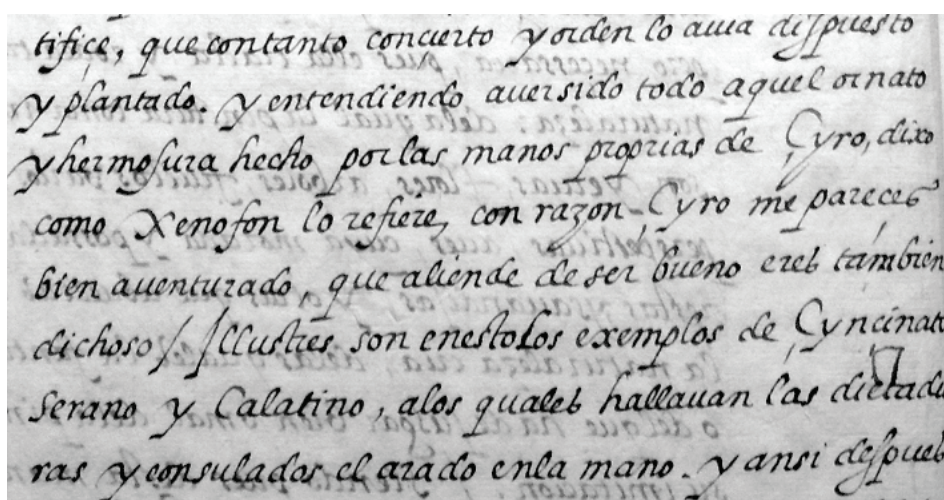 tifice, que contanto concierto y orden lo auia dispuesto
y plantado. y entendiendo auersido todo aquel ornato
y hermosura hecho por las manos proprias de Cyro, dixo
como Xenofon lo refiere, con razon Cyro me pareces
bien auenturado, que aliende de ser bueno eres tambien
dichoso // Illustres son enesto los exemplos de Cyncinato
Serano y Calatino, alos quales hallauan las dictadu
ras y consulados el arado enla mano. y ansi despues